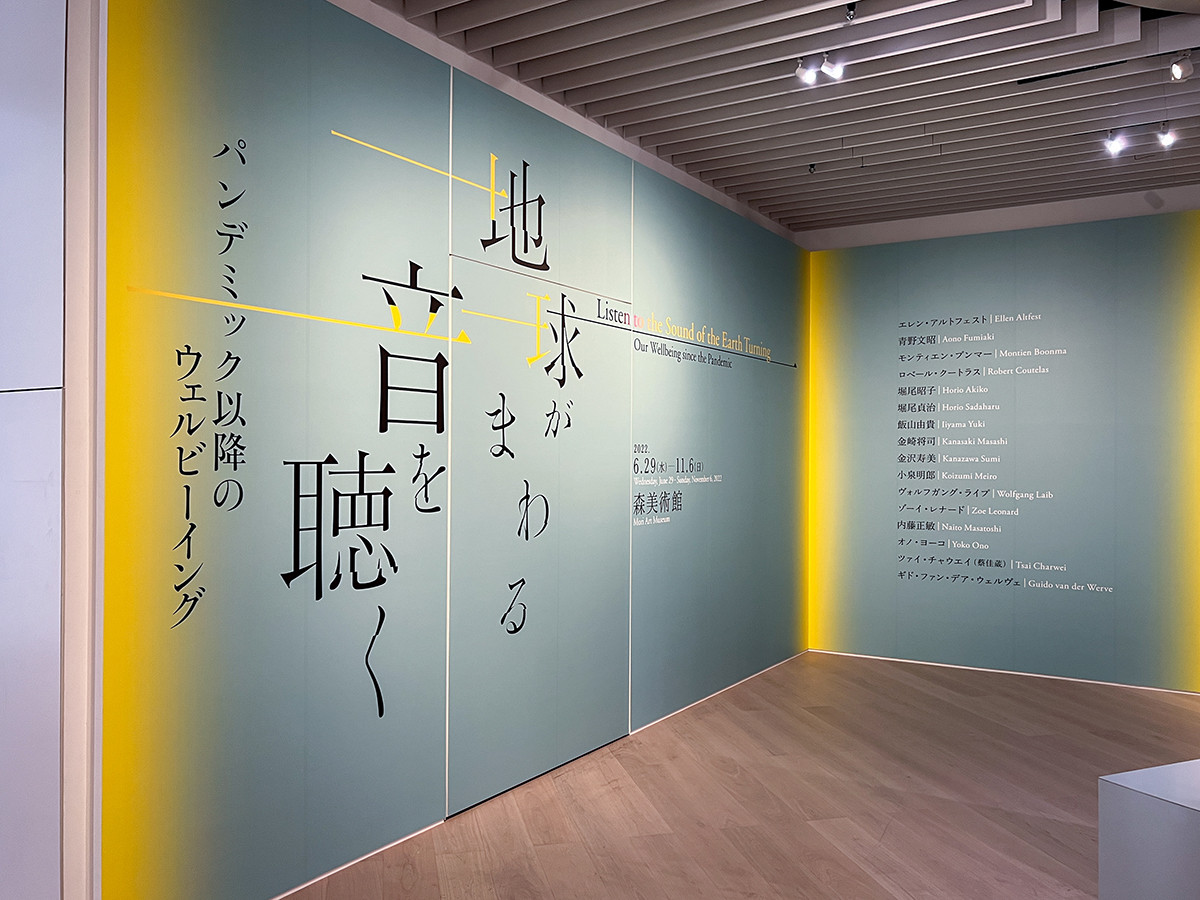 地球がまわる
音を聴く
パンデミック以降の
ウェルビーイング
Listen to the Sound of the Earth Turning
Our Wellbeing since the Pandemic
2022.
6.29(水)—11.6(日)
Wednesday, June 29 - Sunday, November 6, 2022
森美術館
Mori Art Museum
エレン・アルトフェスト | Ellen Altfest
青野文昭 | Aono Fumiaki
モンティエン・ブンマー | Montien Boonma
ロベール・クートラス | Robert Coutelas
堀尾昭子 | Horio Akiko
堀尾貞治 | Horio Sadaharu
飯山由貴 | Iiyama Yuki
金崎将司 | Kanasaki Masashi
金沢寿美 | Kanazawa Sumi
小泉明郎 | Koizumi Meiro
ヴォルフガング・ライプ | Wolfgang Laib
ゾーイ・レナード | Zoe Leonard
内藤正敏 | Naito Masatoshi
オノ・ヨーコ | Yoko Ono
ツァイ・チャウエイ(蔡佳葳) | Tsai Charwei
ギド・ファン・デア・ウェルヴェ | Guido van der Werve